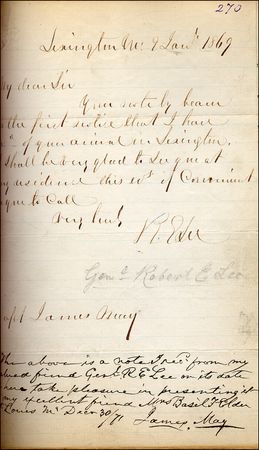 270
Lexington Va: 9 Jany 1869
My dear Sir
Your note by bearer
the first notice that I have
of your arrival in Lexington.
shall be very glad to see you at
my residence this evg if convenient
you to call
Very truly
R. E. Lee
Genl. Robert E Lee
Capt James May
The above is a note I recd from my
valued friend Genl. R. E. Lee on its date
take pleasure in presenting it
my excellent friend Mrs Basil T Elder
St Louis Mo Decr 30/71
James May